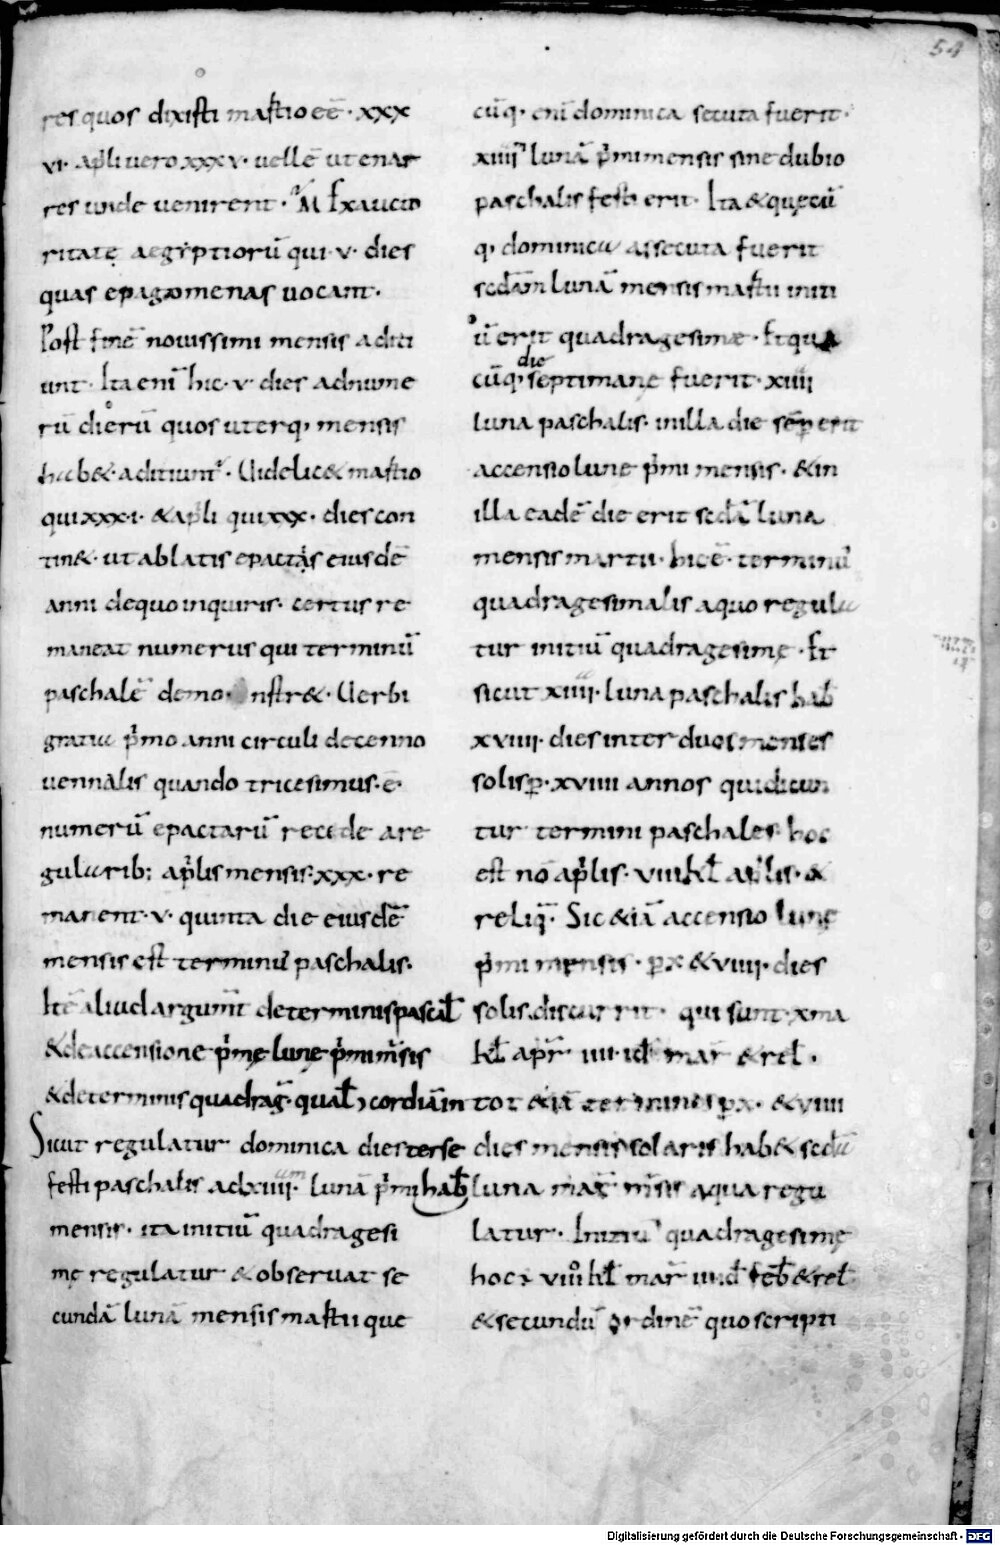 54
res quos dixisti martio eē · xxx
vi · ap̄li uero xxxv · uellē ut enar
res unde uenirent · M̄ Ex aucto
ritatę aegyptiorū qui · v · dies
quas epagomenas uocant ·
Post finē nouissimi mensis adici
unt · Ita enī hic · v · dies ad nume
rū dierū quos uterq; mensis
hab& · aditiunt᷑ · Uidelic& martio
qui xxx·i· & ap̄li qui xxx · dies con
tin& · ut ablatis epactas eiusdē
anni de quo inquiris · certus re
maneat numerus qui terminū
paschalē demo·nstr& · Uerbi
gratia p̄mo anni circuli decenno
uennalis quando tricesimus · ē ·
numerū epactarū recede a re
gularib; ap̄lis mensis · xxx · re
manent · v · quinta die eiusdē
mensis est terminū paschalis ·
Itē aliud argum̄t de terminis pascal̄
& de accensione p̄mę lunę p̄mi m̄sis
& de terminis quadrag̅ · qual̄ ɔcordiā in
Sicut regulatur dominica dies
festi paschalis ad xiiii · lunā p̄mi
mensis · ita initiū quadragesi
me regulatur & obseruat se
cundā lunā mensis martii que
cūq; eni dominica secuta fuerit ·
xiiii lunā p̄mi mensis sine dubio
paschalis festi erit · Ita & quęcū
q; dominica secuta fuerit
sc̄dam lunā mensis martii initi
ū erit quadragesimæ · Et qua
die
cūq; septimanę fuerit · xiiii
luna paschalis · in illa die sēp erit
accensio lune p̄mi mensis · & in
illa eadē die erit sc̄da luna
mensis martii · hic ē · terminū
quadragesimalis a quo regula
tur initiū quadragesimę · Et
sicut xiiii · luna paschalis hab̄
xviiii · dies inter duos menses
solis p · xviiii annos qui dicun
tur termini paschales hoc
est nō ap̄lis · viii kl̄ ap̄lis · &
reliq̄ · Sic & iā accensio lunę
p̄mi mensis · p x & viiii · dies
solis discurrit · qui sunt · x ma
kl̄ apr̄ iiii · id̄ mar̄ & rel̄ ·
tot & iā termines p x · & viiii
terse dies mensis solaris hab& sc̄da
hab̄ luna mar̄ m̄sis a qua regu
latur · Initiū quadragesimę
hoc ÷ viii kl̄ mar̄ iiii id̄ feb̄ & rel̄
& secundū ordinē quo scripti
Digitalisierung gefördert durch die Deutsche Forschungsgemeinschaft - DFG